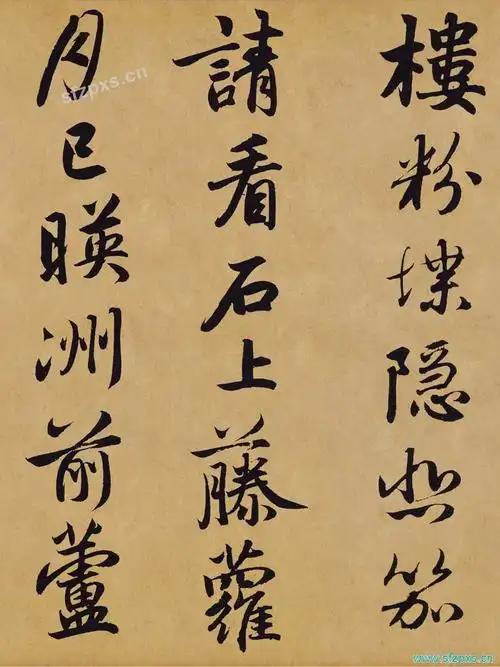 樓粉堞隐悲笳
請看石上藤蘿
月已暎洲前蘆
sfzpxs.cn
www.sfzpxs.cn